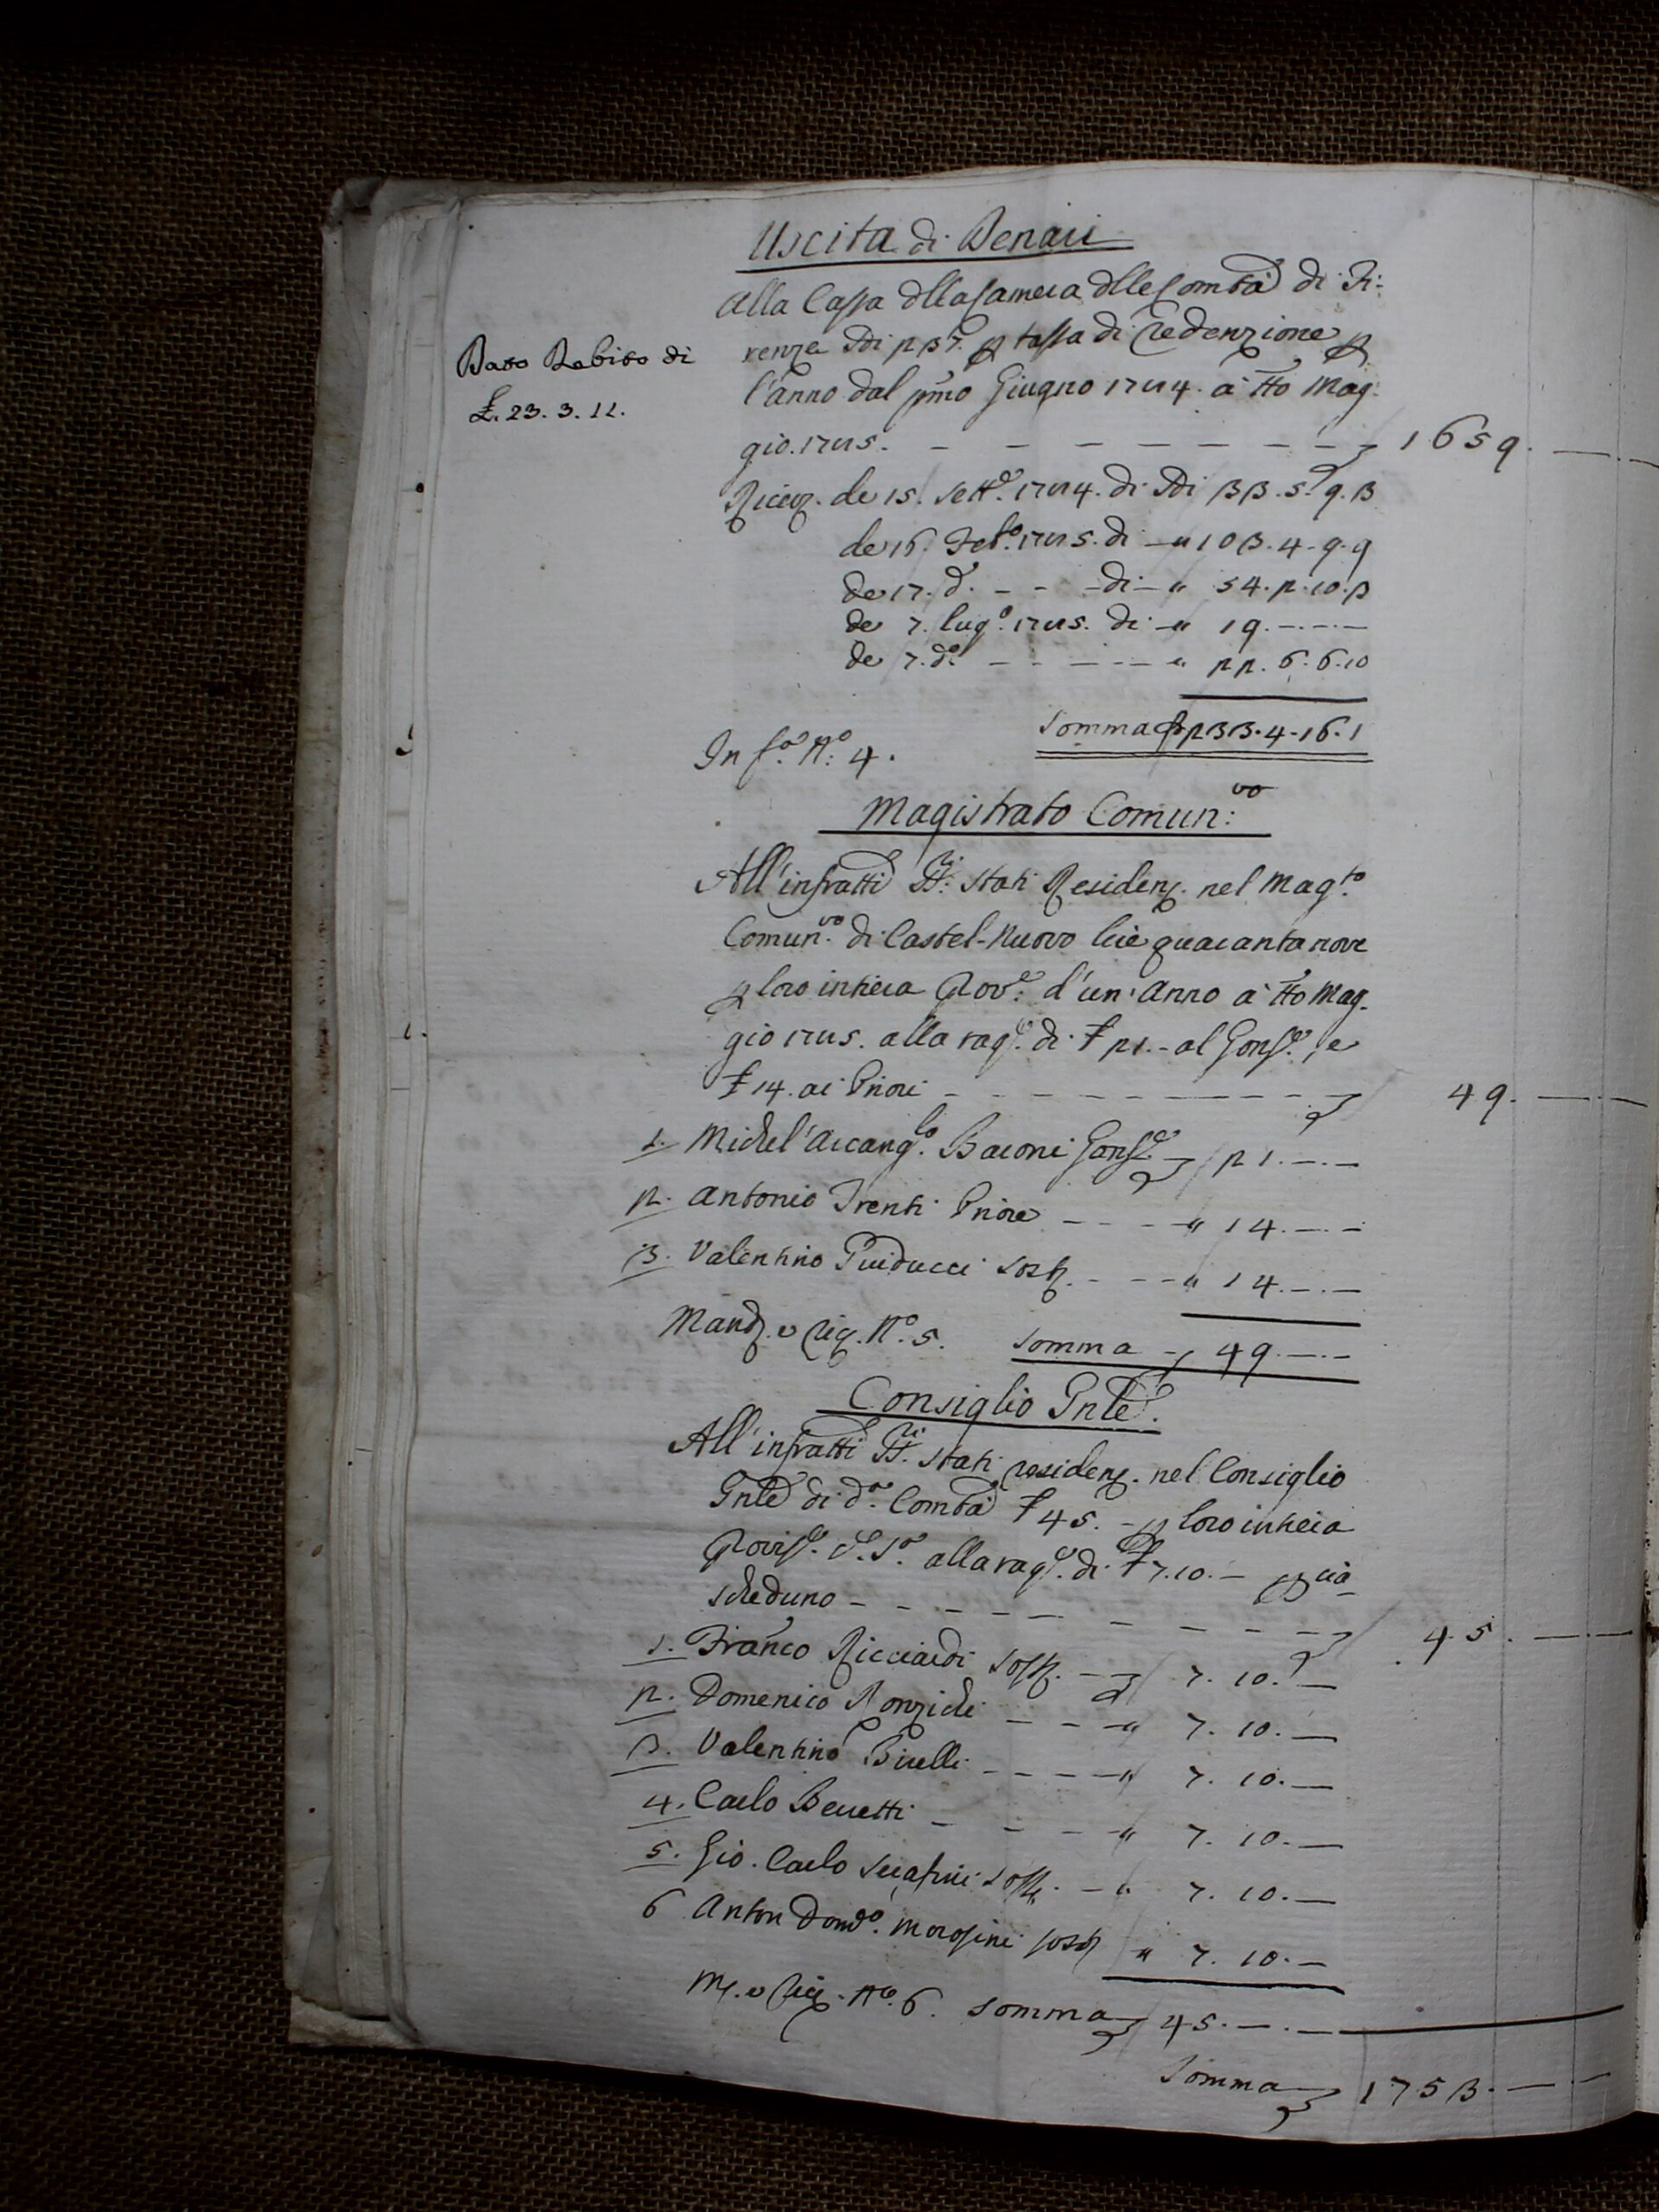 Uscita di Denari
Alla Cassa dlla Camera dlle Comtà di Fi-
renze Sdi 237. p tassa di redenzione p
l'anno dal pmo Giugno 1784. a tto Mag-
gio. 1785. 1659.
Dato Debito di
£. 23. 3. 11.
Ricev. de 15. Sette. 1784. di Sdi 33. 5. 9. 3
de 16. Febo. 1785. di " 103. 4. 9. 9
de 17. do. di " 54. 2. 10. 3
de 7. lugo. 1785. di " 19.
de 7. do. " 22. 6. 6. 10
Somma 233. 4. 16. 1
In fa. No. 4.
Magistrato Comun:vo
All'infratti SS:ri stati Residenz. nel Magto.
Comunvo. di Castel-Nuovo lire quarantanove
p loro intiera Prove: d'un'Anno a tto Mag-
gio 1785. alla rage. di £ 21. - al Gonfre., e
£ 14. ai Priori 49.
1. Michel'Arcanglo. Baroni Gonfre. 21.
2. Antonio Trenti Priore " 14.
3. Valentino Guiducci sost. " 14.
Mand. e ric. No. 5. Somma 49.
Consiglio Gnle.
All'infratti SS.ri stati residenz. nel Consiglio
Gnle di da. Comtà £ 45. - p loro intiera
Provise. c. sa. alla rage. di £ 7. 10. - p cia-
scheduno 45.
1. Franco Ricciardi sost. 7. 10.
2. Domenico Ronzichi " 7. 10.
3. Valentino Birelli " 7. 10.
4. Carlo Beretti " 7. 10.
5. Gio. Carlo Serafini sost. " 7. 10.
6 Anton Domco. Morosini sost " 7. 10.
M. e ric. No. 6. Somma 45.
Somma 1753.